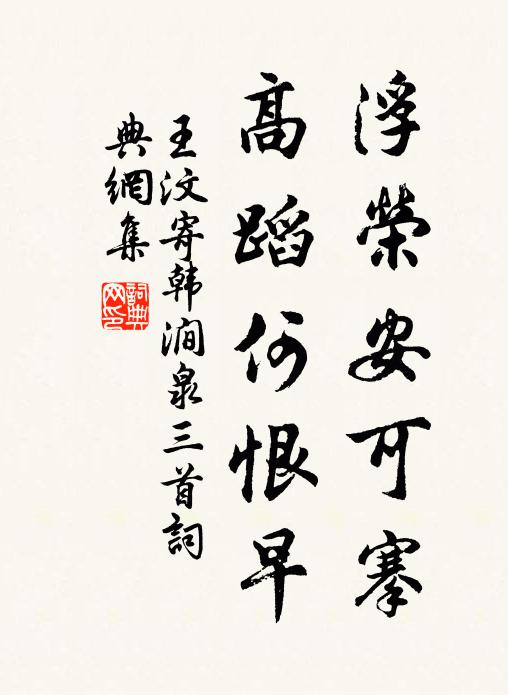 浮榮安可搴
高蹈何恨早
王汶寄韩澗泉三首詞
典網集
詞典
网印